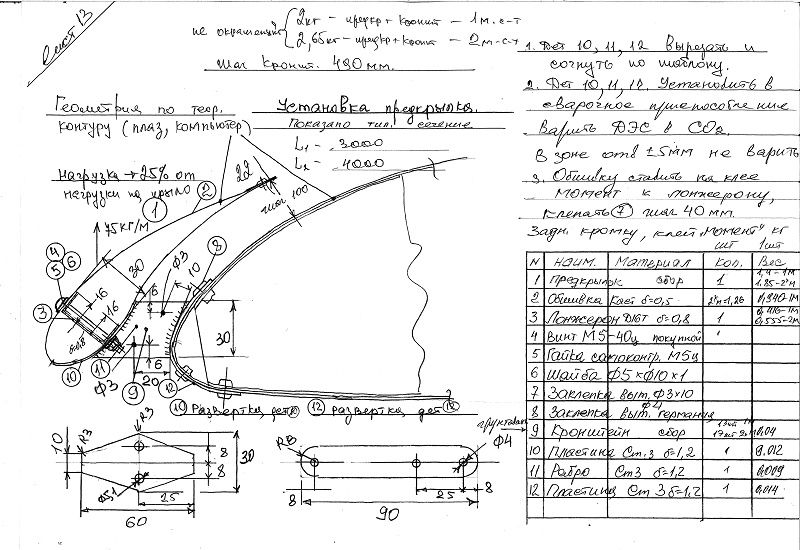 Лист 13
не окрашенный { 2кг – предкр + кроншт – 1м.с-т
2,65кг – предкр + кроншт – 2м-с-т
Шаг Кроншт. 490мм.
Геометрия по теор.
контуру (плаз, компьютер)
Установка предкрылка.
Показано тип. сечение
L₁ - 3000
L₂ - 4000
Нагрузка → 25% от
нагрузки на крыло
75кг/м
22
шаг 100
1
2
30
Ф3
8
10
4
5 6
3
16
16
6
30
δ=0,8
10
11
Ф3
6
9
20
12
10 Развертка дет 10
12 развертка дет 12
R3
R3
10
8
8
30
Ф5,1
25
60
R8
Ф4
8
25
8
90
1. Дет 10, 11, 12 Вырезать и
согнуть по шаблону.
2. Дет 10, 11, 12. Установить в
сварочное приспособление
Варить ДЭС в CO₂.
В зоне отв ±5мм не варить
3. Обшивку ставить на клее
момент к лонжерону,
клепать 7 шаг 40мм.
Задн. кромку, клей „Момент" кг
шт 1шт
N наим. Материал Кол. Вес
1 Предкрылок сбор 1 1,4-1м 1.85-2м
2 Обшивка δ=0,5 0,940-1м
3 Лонжерон Д16Т δ=0,8 1 0,416-1м 0,555-2м
4 Винт М5-40ц покупной
5 Гайка самоконтр. М5ц
6 Шайба Ф5×Ф10×1
7 Заклепка выт. Ф3×10
8 Заклепка выт. Ф4 германия
9 Кронштейн сбор 0,04
10 Пластина Ст.3 δ=1,2 1 0.012
11 Ребро Ст3 δ=1,2 1 0,009
12 Пластина Ст 3 δ=1,2 1 0,014